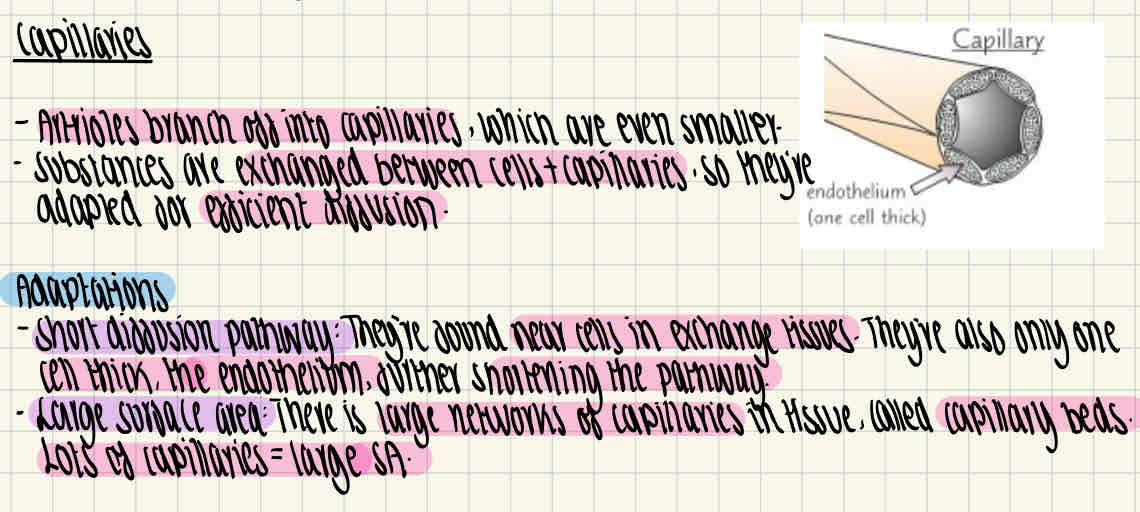 Capillaries
Capillary
- Artrioles branch off into capillaries, which are even smaller.
- Substances are exchanged between cells + capillaries, so they're
adapted for efficient diffusion.
endothelium
(one cell thick)
Adaptations
- Short diffusion pathway: They're found near cells in exchange tissues. They're also only one
cell thick, the endothelium, further shortening the pathway.
- Large surface area: There is large networks of capillaries in tissue, called capillary beds.
Lots of capillaries = large SA.